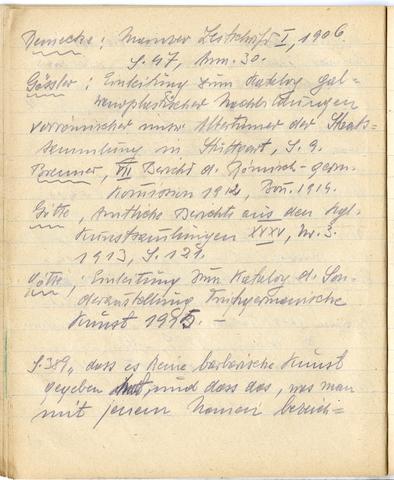 Reinecke: Mainzer Zeitschrift I, 1906.
S. 47, Anm. 30.
Gössler: Einleitung zum Katalog gal=
vanoplastischer Nachbildungen
vorrömischer usw. Altertümer der Staats=
sammlung in Stuttgart, S. 9.
Brenner, VII Bericht d. Römisch-germ.
Komission 1912,
Götze, Amtliche Berichte aus den Kgl.
Kunstsammlungen XXXV, Nr. 3.
1913, S. 121.
Götze, Einleitung zum Katalog d. Son=
derausstellung Frühgermanische
Kunst 1915. —
S. 389 „dass es keine barbarische Kunst
gegeben hat, und dass das, was man
mit jenem Namen bezeich=